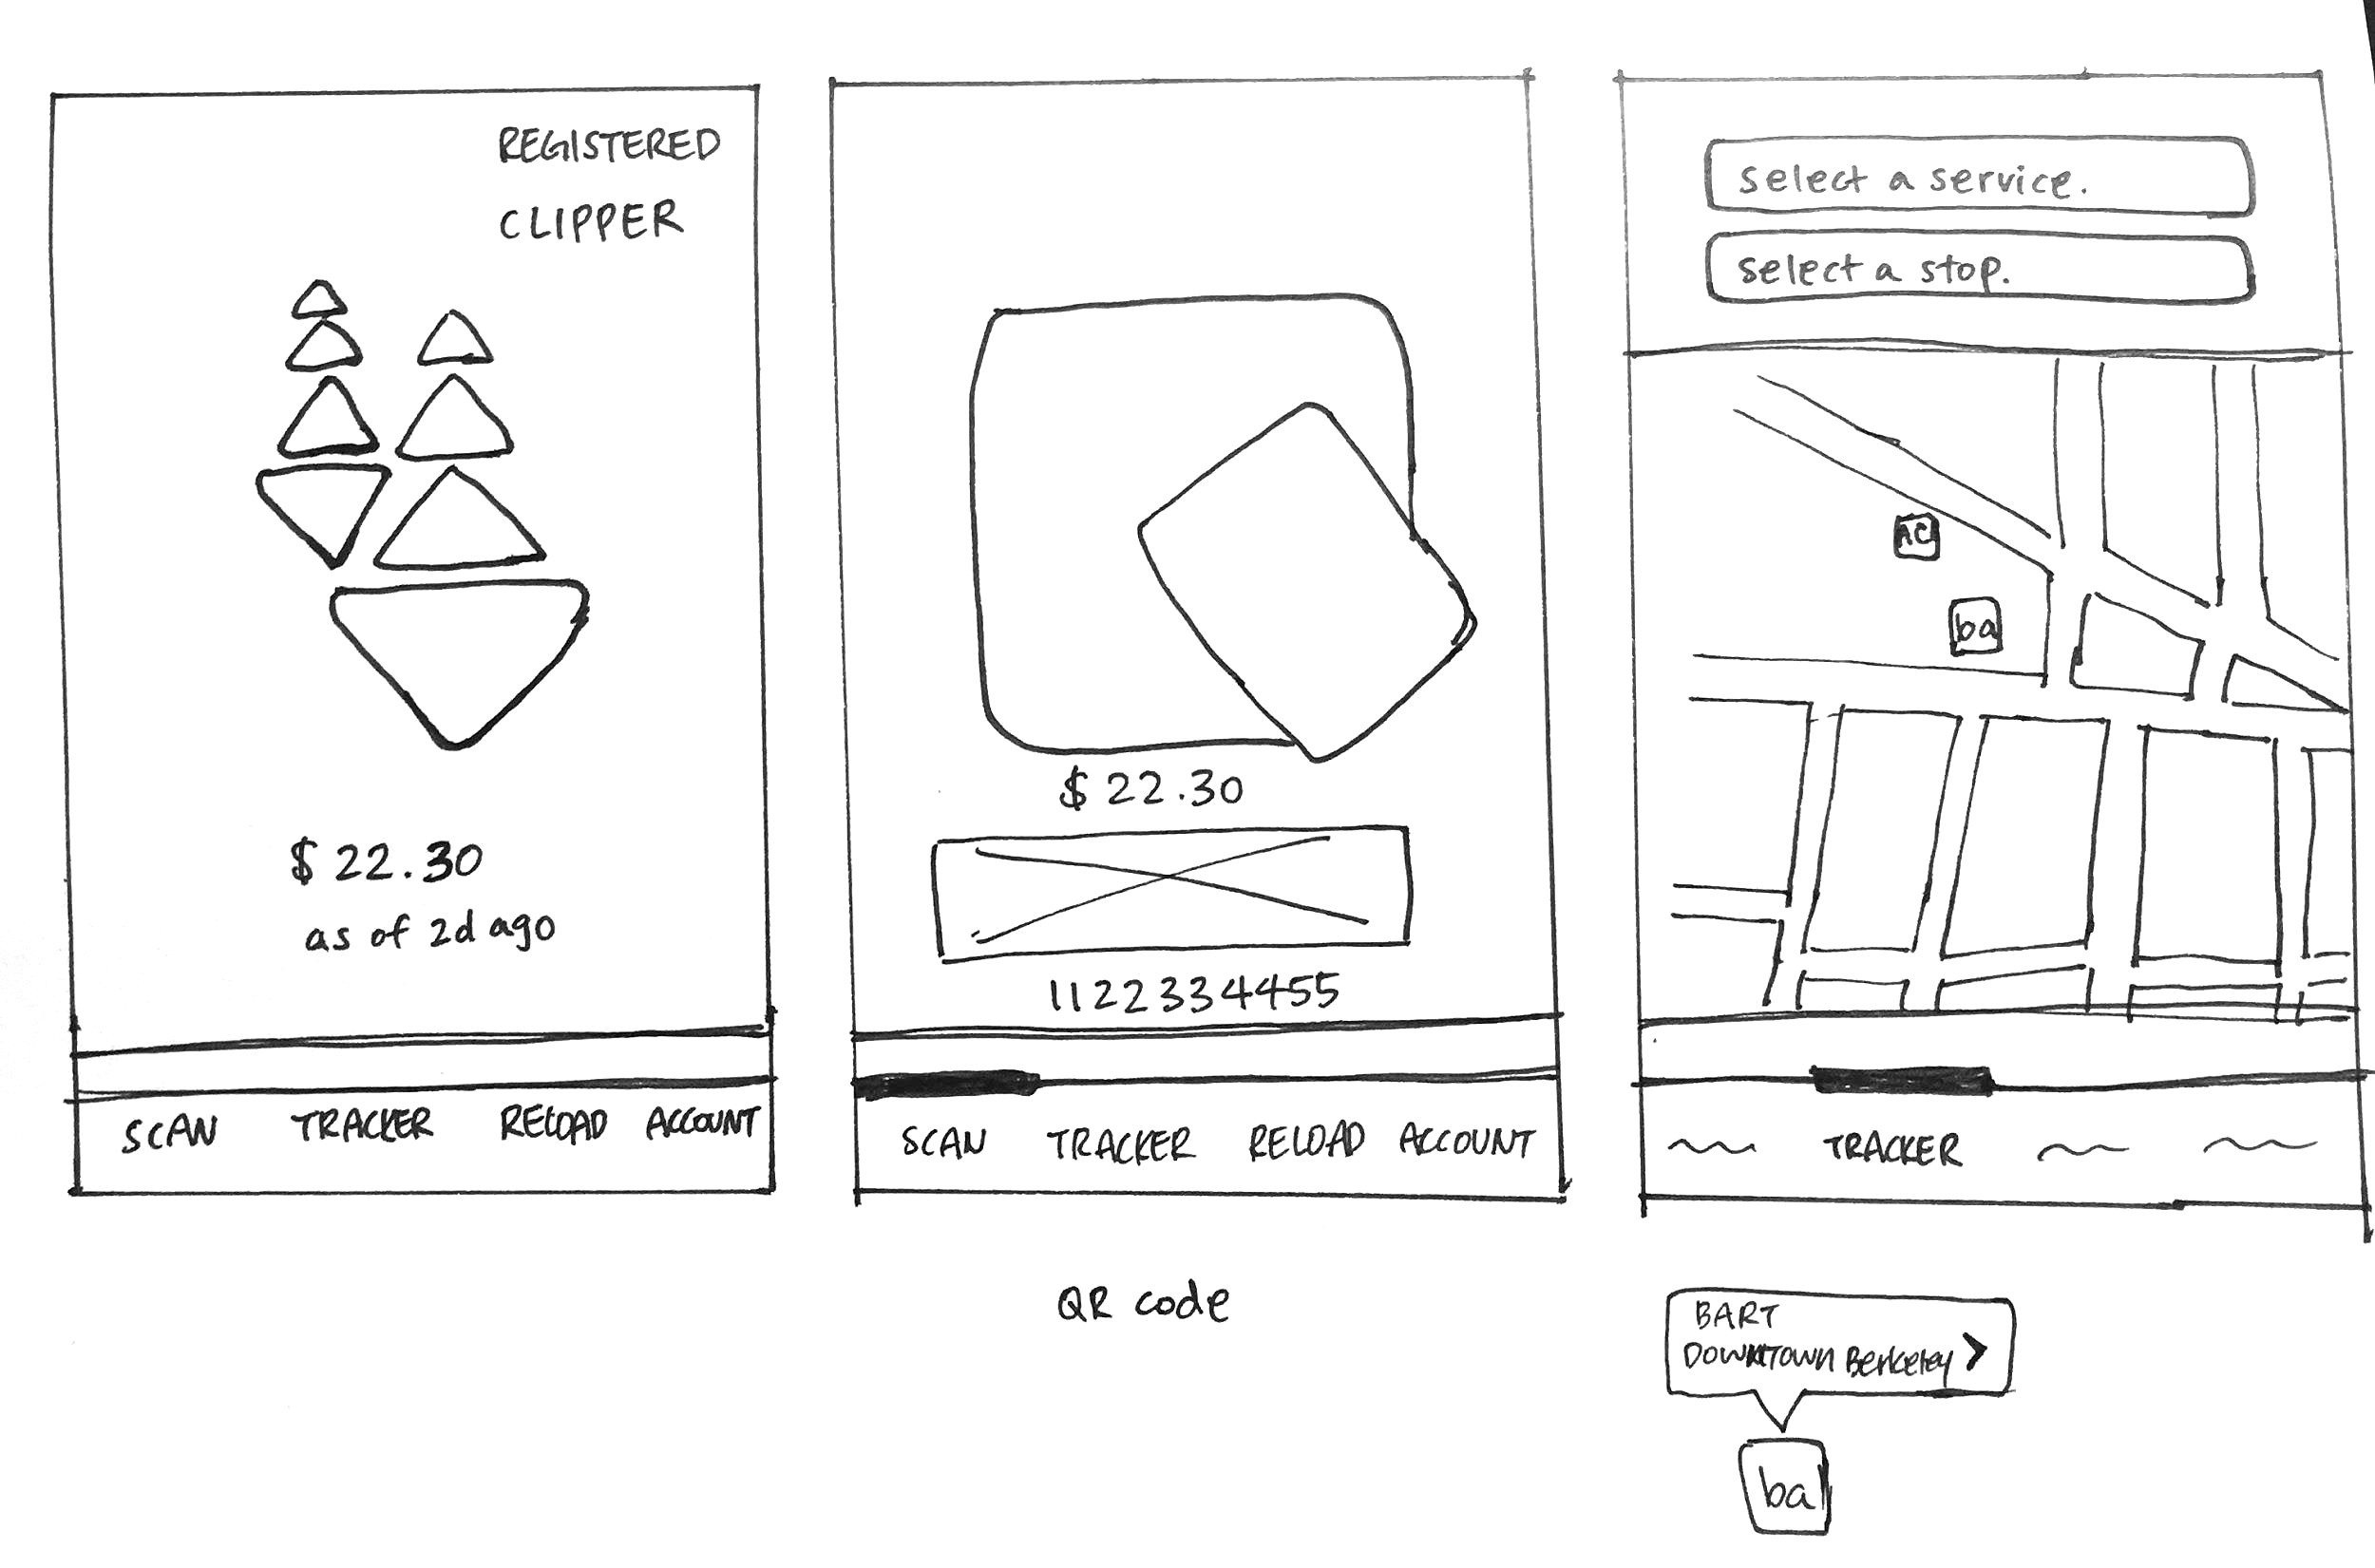 REGISTERED
CLIPPER
$ 22.30
as of 2d ago
SCAN TRACKER RELOAD ACCOUNT
$ 22.30
1122334455
SCAN TRACKER RELOAD ACCOUNT
QR code
select a service.
select a stop.
AC
ba
TRACKER
BART
DOWNTOWN Berkeley >
ba